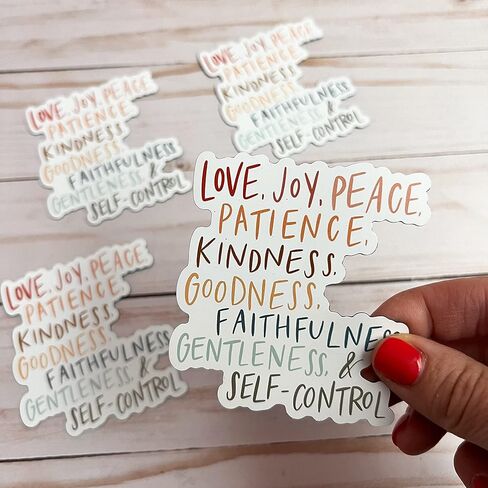 LOVE, JOY, PEACE,
PATIENCE,
KINDNESS,
GOODNESS,
FAITHFULNESS,
GENTLENESS, &
SELF-CONTROL
LOVE, JOY, PEACE,
PATIENCE,
KINDNESS,
GOODNESS,
FAITHFULNESS,
GENTLENESS, &
SELF-CONTROL
LOVE, JOY, PEACE,
PATIENCE,
KINDNESS,
GOODNESS,
FAITHFULNESS
GENTLENESS, &
SELF-CONTROL
LOVE, JOY, PEACE,
PATIENCE,
KINDNESS,
GOODNESS,
FAITHFULNESS
GENTLENESS, &
SELF-CONTROL